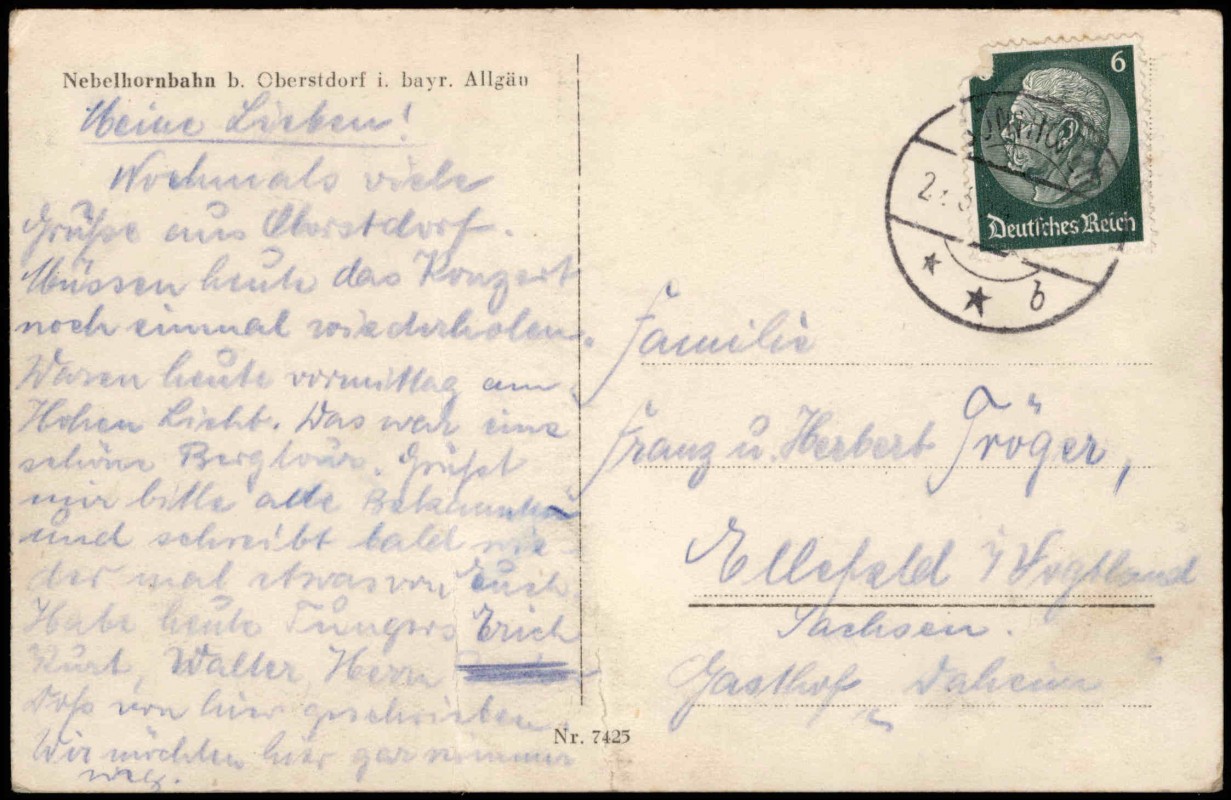 Nebelhornbahn b. Oberstdorf i. bayr. Allgäu
Meine Lieben!
Nochmals viele
Grüße aus Oberstdorf.
Müssen heute das Konzert
noch einmal wiederholen.
Waren heute vormittag am
Hohen Licht. Das war eine
schöne Bergtour. Grüßt
mir bitte alle Bekannten
und schreibt bald wie-
der mal etwas von Euch.
Habe heute Erich
Kurt, Walter, Herrn
von hier geschrieben.
Wir möchten hier gar nimmer
weg.
Nr. 7425
6
Deutsches Reich
b
Familie
Franz u. Herbert Tröger,
Ellefeld i/Vogtland
Sachsen.
Gasthof Daheim